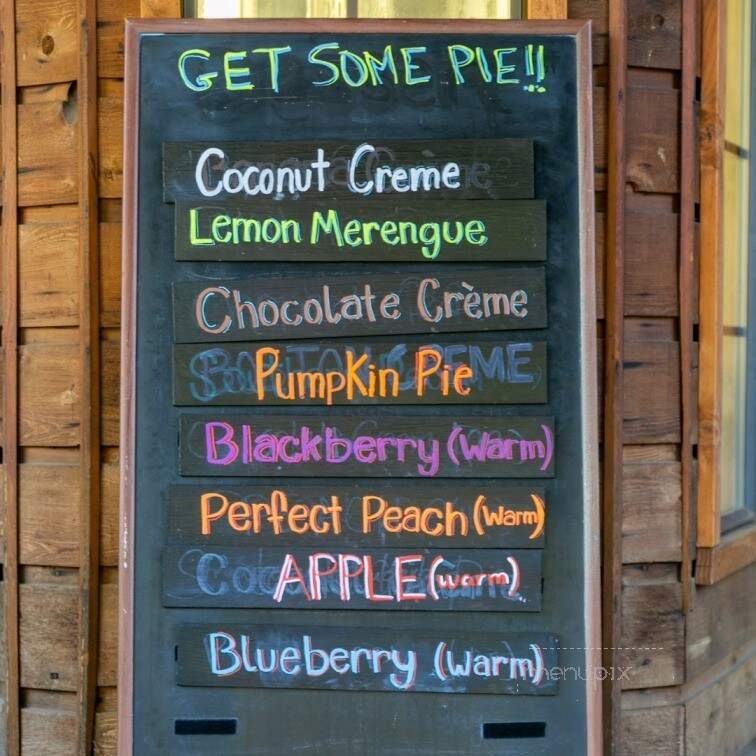 GET SOME PIE!!
Coconut Creme
Lemon Merengue
Chocolate Crème
Pumpkin Pie
Blackberry (warm)
Perfect Peach (warm)
APPLE (warm)
Blueberry (warm)
menupix